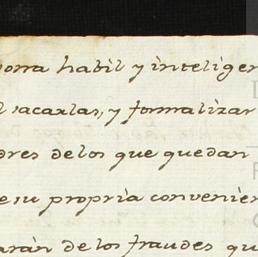 sona habil y inteligen
l sacarlas, y formalizar
dres delos que quedan
e su propria convenien
arán de los fraudes qu